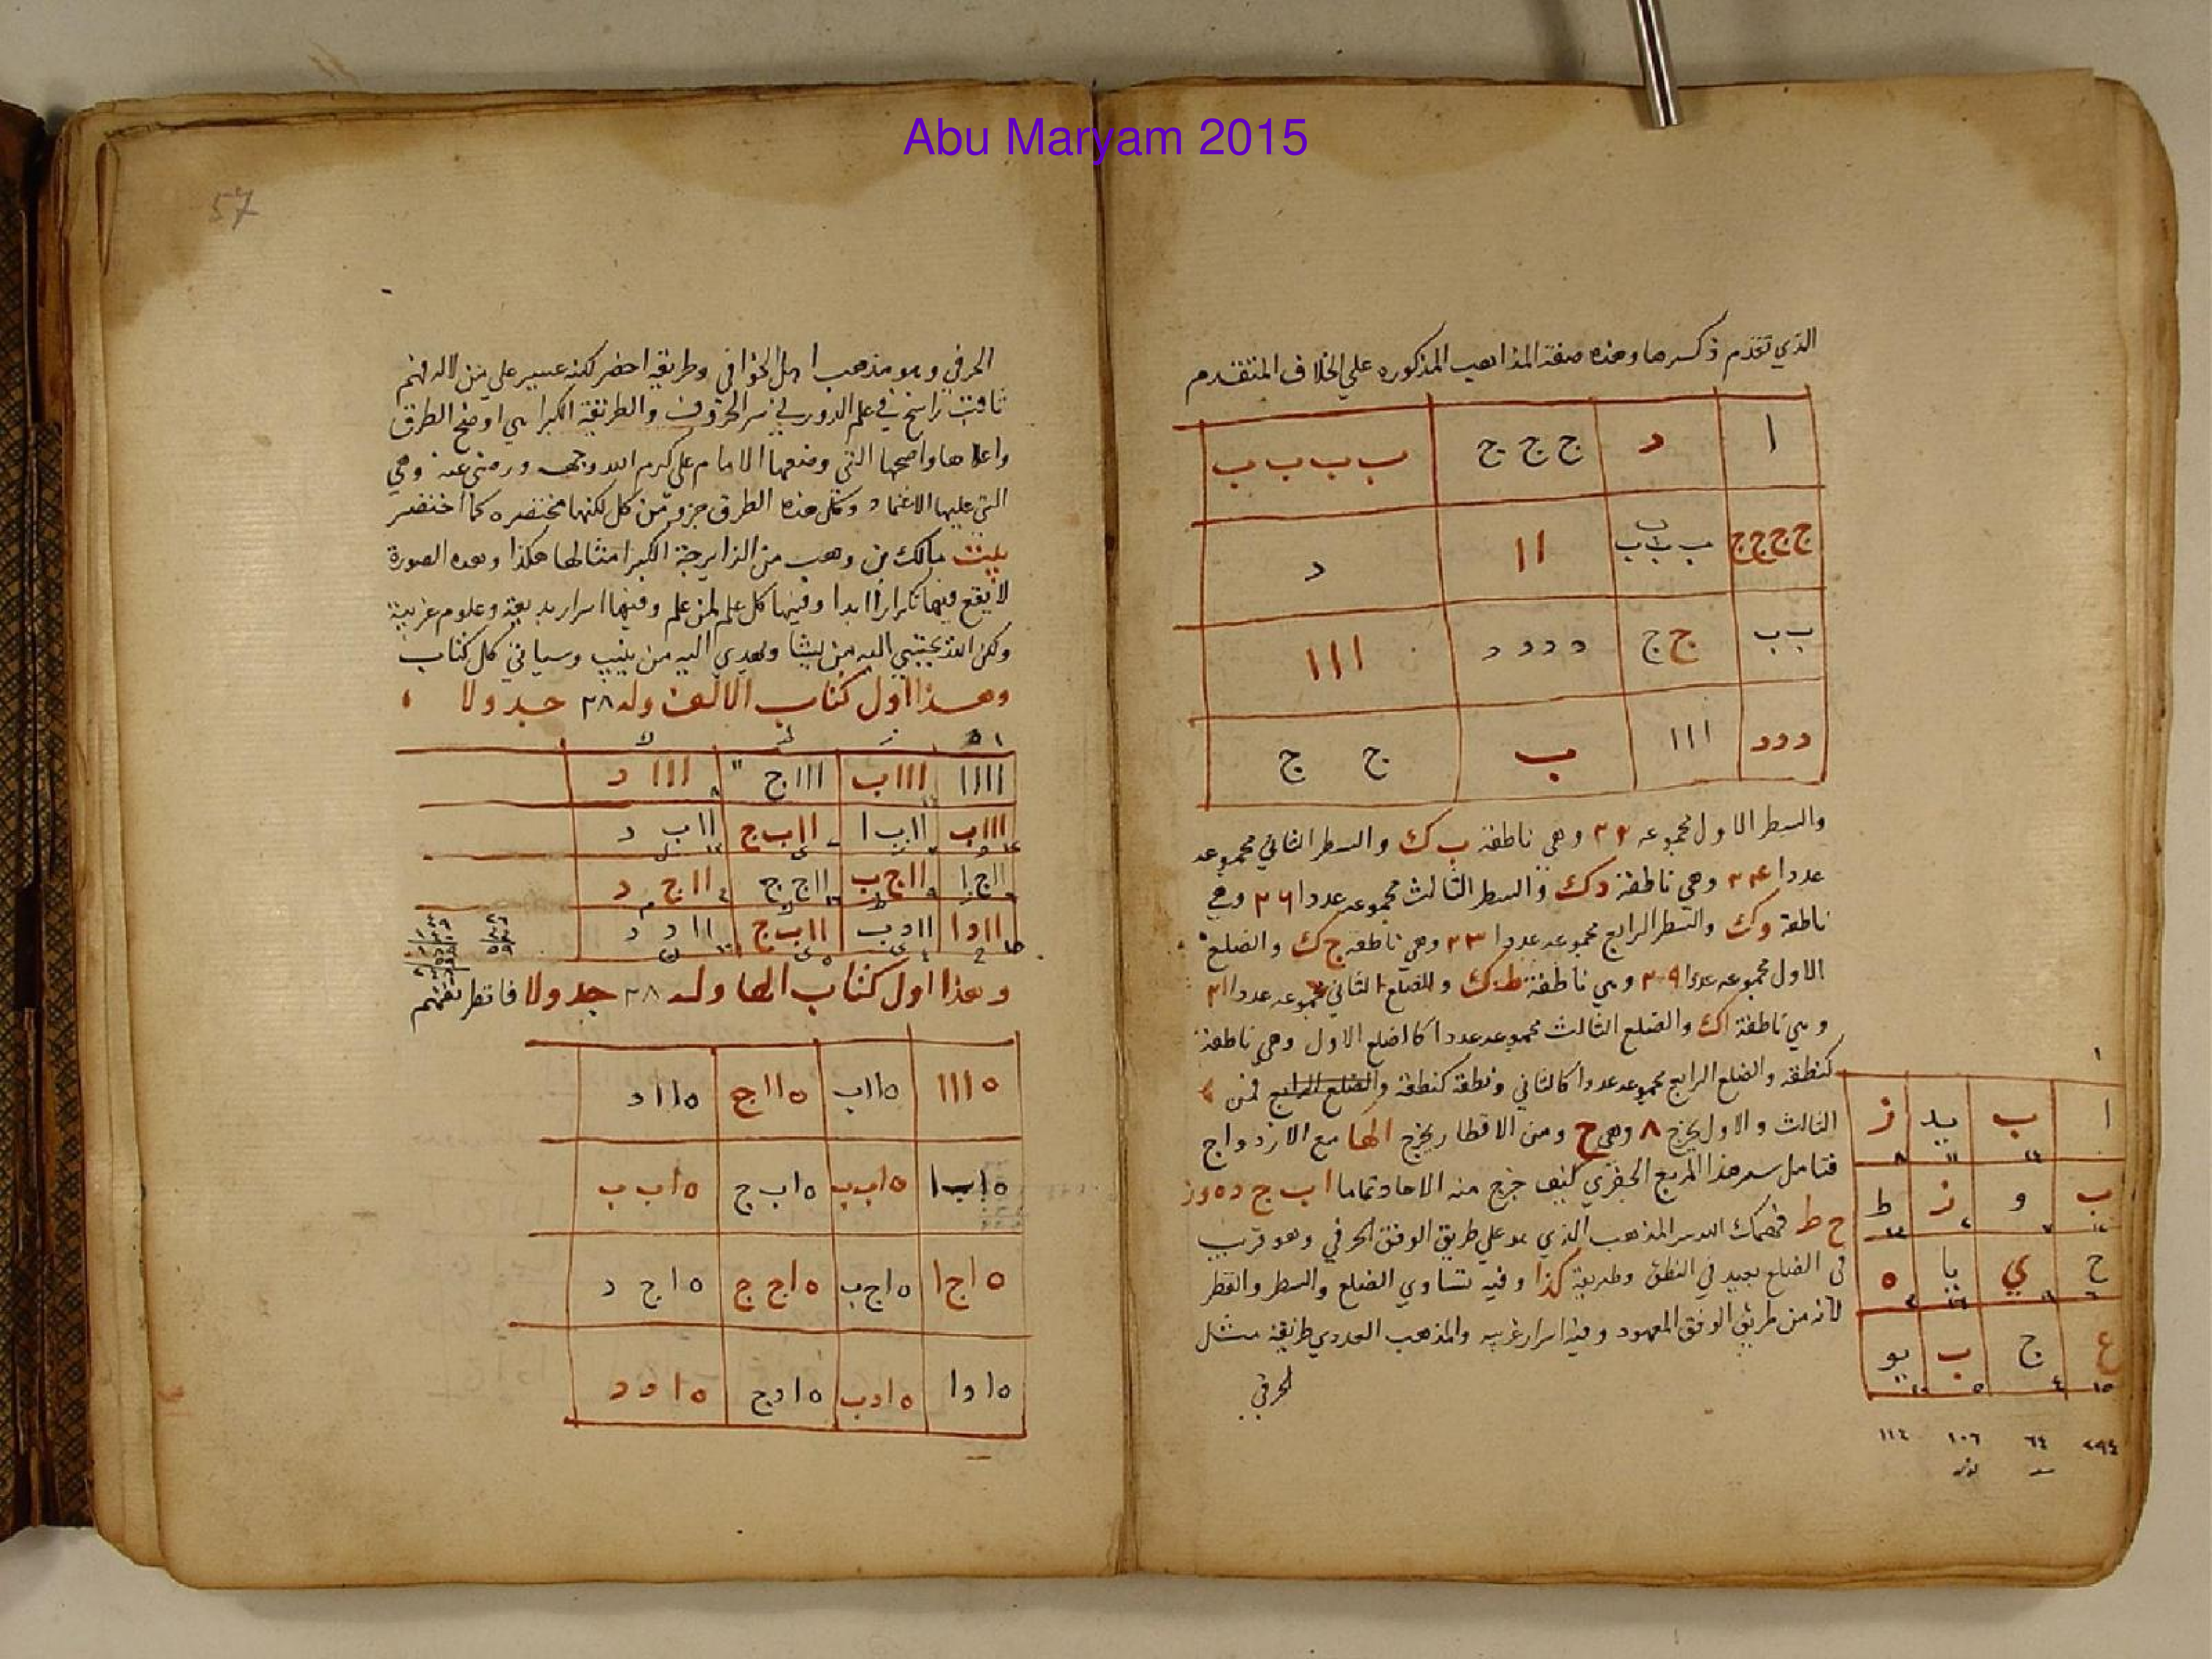 Abu Maryam 2015
الذي تقدم ذكرها وهذه صفة المذاهب المذكوره علي الخلاف المتقدم
ا د ج ج ج ب ب ب ب
ج ج ج ج ب ب ب ب ا ا د
ب ب ج ج د د د د ا ا ا
د د د ا ا ا ب ج ج
والسطر الاول مجموعه وهي ناطقة ب ك والسطر الثاني مجموعه
عددا وهي ناطقة د ك والسطر الثالث مجموعه عددا ٢٦ وهي
ناطقة وك والسطر الرابع مجموعه عددا ٢٣ وهي ناطقه ج ك والضلع
الاول مجموعه عددا وهي ناطقة ط ك والضلع الثاني مجموعه عددا ٢١
وهي ناطقة اك والضلع الثالث مجموعه عددا كاضلع الاول وهي ناطقة
كنطقه والضلع الرابع مجموعه عددا كالثاني ونطقه كنطقه والضلع الرابع فمن
الثالث والاول يخرج ٨ وهي ح ومن الاقطار يخرج الها مع الازدواج
فتامل سر هذا المربع الجفري كيف خرج منه الاحاد تماما ا ب ج د ه و ز
ح ط فهمك الله سر المذهب الذي هو علي طريق الوفق الحرفي وهو قريب
في الضلع بعيد في النطق وطريقة كذا وفيه تساوي الضلع والسطر والقطر
لانه من طريق الوفق المعهود وفيه اسرار غريبه والمذهب العددي طريقة مثل
الحرفي
ا ب يد ز
ب و ز ط
ح ي يا ه
ع ج ب يو
٦٤ ١٠٦ ١١٤
57
الحرفي وهو مذهب اهل الخوافي وطريقه احضر لكنه عسير علي من لا له فهم
ثاقب راسخ في علم الدور في سر الحروف والطريقة الكبرا هي اوضح الطرق
واعلاها واصحها التي وضعها الامام علي كرم الله وجهه ورضي عنه وهي
التي عليها الاعتماد وكل هذه الطرق جزو من كل لكنها مختصره كما اختصر
بيت مالك بن وهب من الزايرجة الكبرا مثالها هكذا وهذه الصورة
لا يقع فيها تكرارا ابدا وفيها كل علم لمن علم وفيها اسرار بديعة وعلوم غريبة
ولكن الله يجتبي اليه من يشا ويهدي اليه من ينيب وسياتي كل كتاب
وهذا اول كتاب الالف وله ٢٨ جدولا
اااا اااب اااج ااا د
اااب ااب ا ااب ج ااب د
ااج ا ااج ب ااج ج ااج د
ااد ا ااد ب ااب ج اا د د
وهذا اول كتاب الها وله ٢٨ جدولا فانظر تفهم
ه ااا ه ااب ه ااج ه ااد
ه اب ا ه اب ب ه اب ج ه اب ب
ه اج ا ه اج ب ه اج ج ه اج د
ه اد ا ه اد ب ه اد ج ه اد د